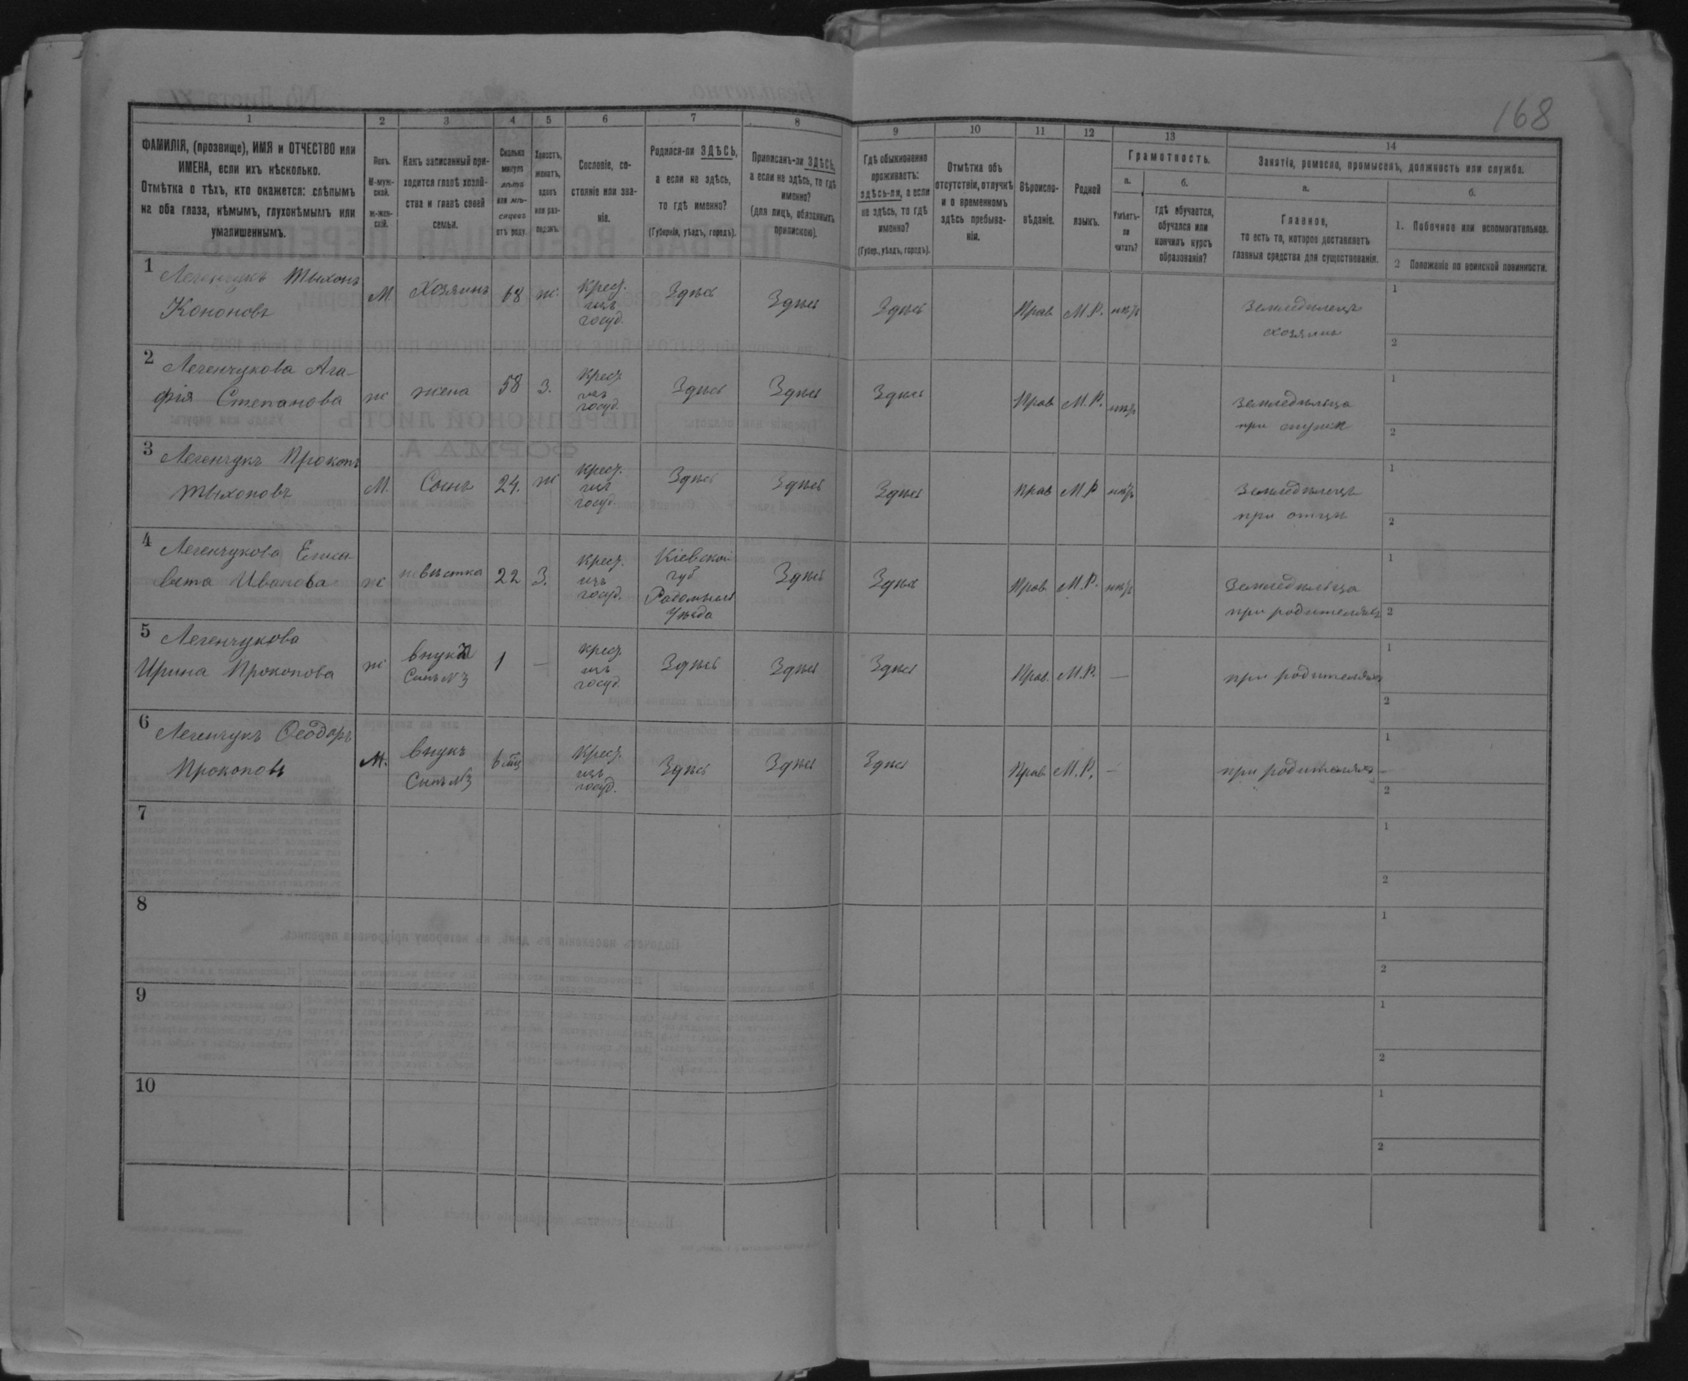 168
1
2
3
4
5
6
7
8
9
10
11
12
13
14
ФАМИЛІЯ, (прозвище), ИМЯ и ОТЧЕСТВО или
ИМЕНА, если ихъ нѣсколько.
Отмѣтка о тѣхъ, кто окажется: слѣпымъ
на оба глаза, нѣмымъ, глухонѣмымъ или
умалишеннымъ.
Полъ.
М-муж-
ской.
ж-жен-
скій.
Какъ записанный при-
ходится главѣ хозяй-
ства и главѣ своей
семьи.
Сколько
минуло
лѣтъ
или мѣ-
сяцевъ
отъ роду.
Холостъ,
женатъ,
вдовъ
или раз-
веденъ.
Сословіе, со-
стояніе или зва-
ніе.
Родился-ли ЗДѢСЬ,
а если не здѣсь,
то гдѣ именно?
(Губернія, уѣздъ, городъ).
Приписанъ-ли ЗДѢСЬ,
а если не здѣсь, то гдѣ
именно?
(для лицъ, обязанныхъ
припискою).
Гдѣ обыкновенно
проживаетъ:
здѣсь-ли, а если
не здѣсь, то гдѣ
именно?
(Губер., уѣздъ, городъ).
Отмѣтка объ
отсутствіи, отлучкѣ
и о временномъ
здѣсь пребыва-
ніи.
Вѣроиспо-
вѣданіе.
Родной
языкъ.
Грамотность.
а.
Умѣетъ-
ли
читать?
б.
гдѣ обучается,
обучался или
кончилъ курсъ
образованія?
Занятіе, ремесло, промыселъ, должность или служба.
а.
Главное,
то есть то, которое доставляетъ
главныя средства для существованія.
б.
1. Побочное или вспомогательное.
2 Положеніе по воинской повинности.
1 Легенчукъ Тыхонъ
Кононовъ
М. Хозяинъ 68 ж. Крест. изъ госуд. Здѣсь Здѣсь Здѣсь Прав. М.Р. нѣтъ Земледѣлецъ хозяинъ
1
2
2 Легенчукова Ага-
фія Степанова
ж жена 58 З. Крест. изъ госуд. Здѣсь Здѣсь Здѣсь Прав. М.Р. нѣтъ Земледѣлица при мужѣ
1
2
3 Легенчукъ Прокопъ
Тыхоновъ
М. Сынъ 24. ж Крест. изъ госуд. Здѣсь Здѣсь Здѣсь Прав М.Р нѣтъ Земледѣлецъ при отцѣ
1
2
4 Легенчукова Елиса
вета Иванова
ж невѣстка 22 З. Крест. изъ госуд. Кіевской губ. Радомысл Уѣзда Здѣсь Здѣсь Прав М.Р. нѣтъ Земледѣлица при родителяхъ
1
2
5 Легенчукова
Ирина Прокопова
ж внука Сынъ №3 1 — Крест. изъ госуд. Здѣсь Здѣсь Здѣсь Прав. М.Р. — при родителяхъ
1
2
6 Легенчукъ Ѳеодоръ
Прокоповъ
М. внукъ Сынъ №3 6 мѣс Крест. изъ госуд. Здѣсь Здѣсь Здѣсь Прав М.Р. — при родителяхъ
1
2
7
1
2
8
1
2
9
1
2
10
1
2